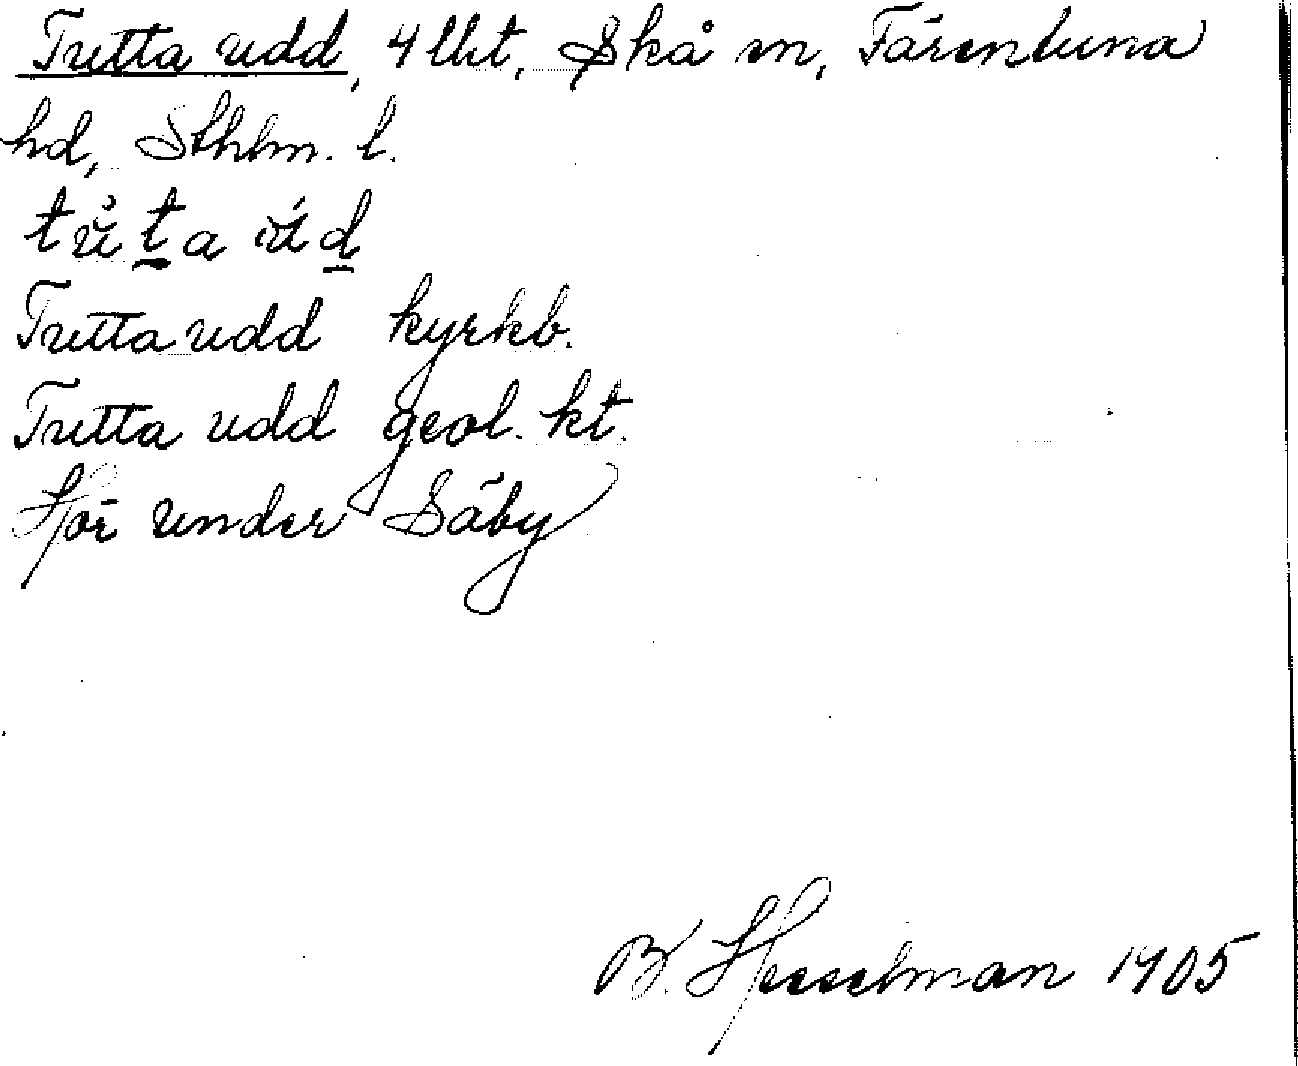 Tutta udd, 4 lht, Skå sn, Färentuna
hd, Sthlm. l.
Tutta udd kyrkb.
Tutta udd geol. kt.
Hör under Säby
B. Hesselman 1905